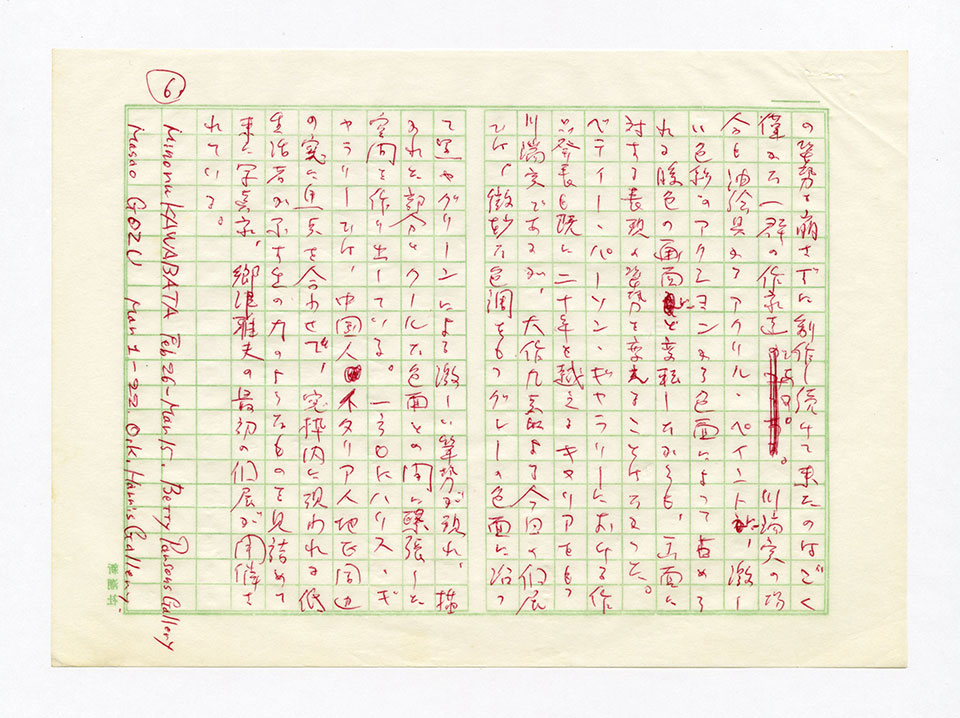 6
の姿勢を崩さずに創作し続けて来たのはごく
僅かな一群の作家達である。川端実の場
合も油絵具からアクリル・ペイントに、激し
い色彩のアクションから色面によって占めら
れる暖色の画面にと変転しながらも、画面に
対する表現の姿勢を変えることはなかった。
ベティー・パーソン・ギャラリーにおける作
品発表も既に二十年を越えるキャリアをもつ
川端実であるが、大作九点による今回の個展
では、微妙な色調をもつグレーの色面に沿っ
て黒やグリーンによる激しい筆勢が現れ、描
かれた部分とクールな色面との間に緊張した
空間を作り出している。一方O・Kハリス・ギ
ャラリーでは、中国人イタリア人地区周辺
の窓に焦点を合わせて、窓枠内に現われる低
生活者が示す生の力のようなものを見詰めて
来た写真家、郷津雅夫の最初の個展が開催さ
れている。
Minoru KAWABATA Feb 26-Mar 15. Betty Parsons Gallery
Masao GOZU Mar 1-22. O.K. Harris Gallery.